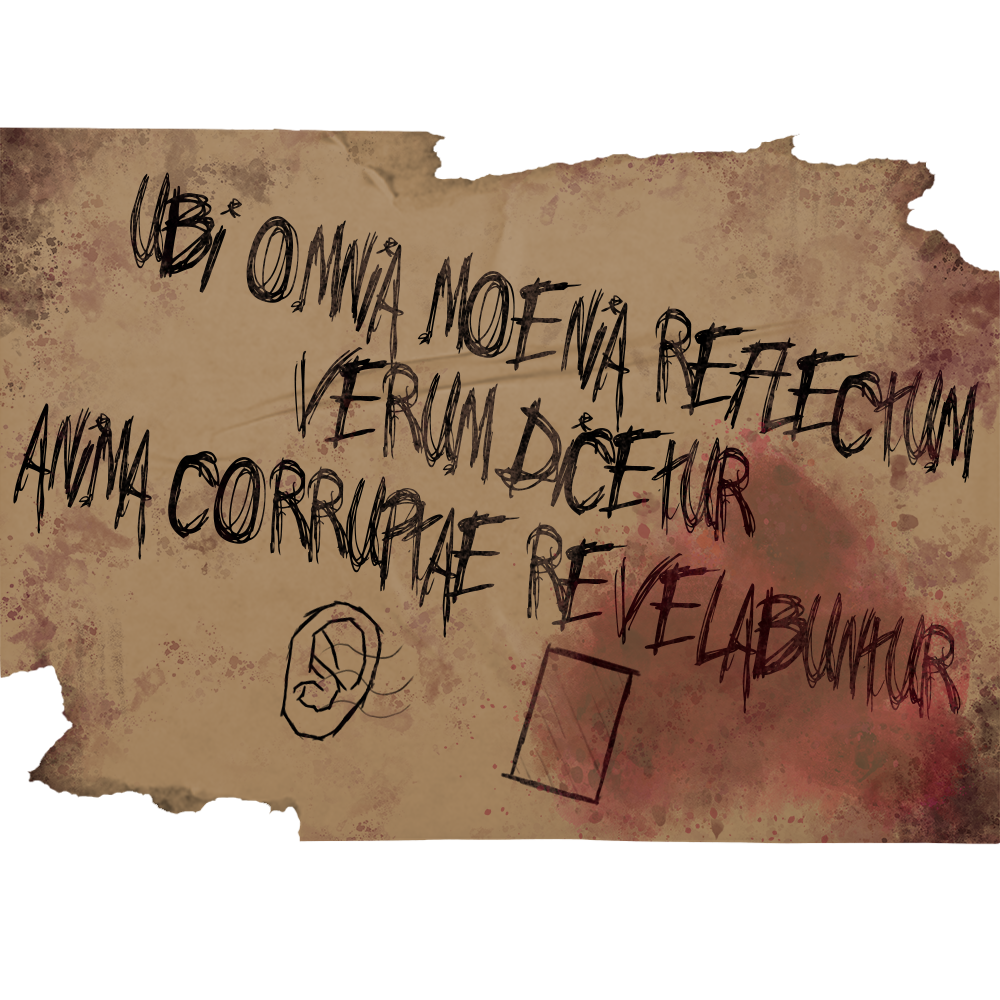 UBI OMNIA MOENIA REFLECTUM
VERUM DICETUR
ANIMA CORRUPTAE REVELABUNTUR